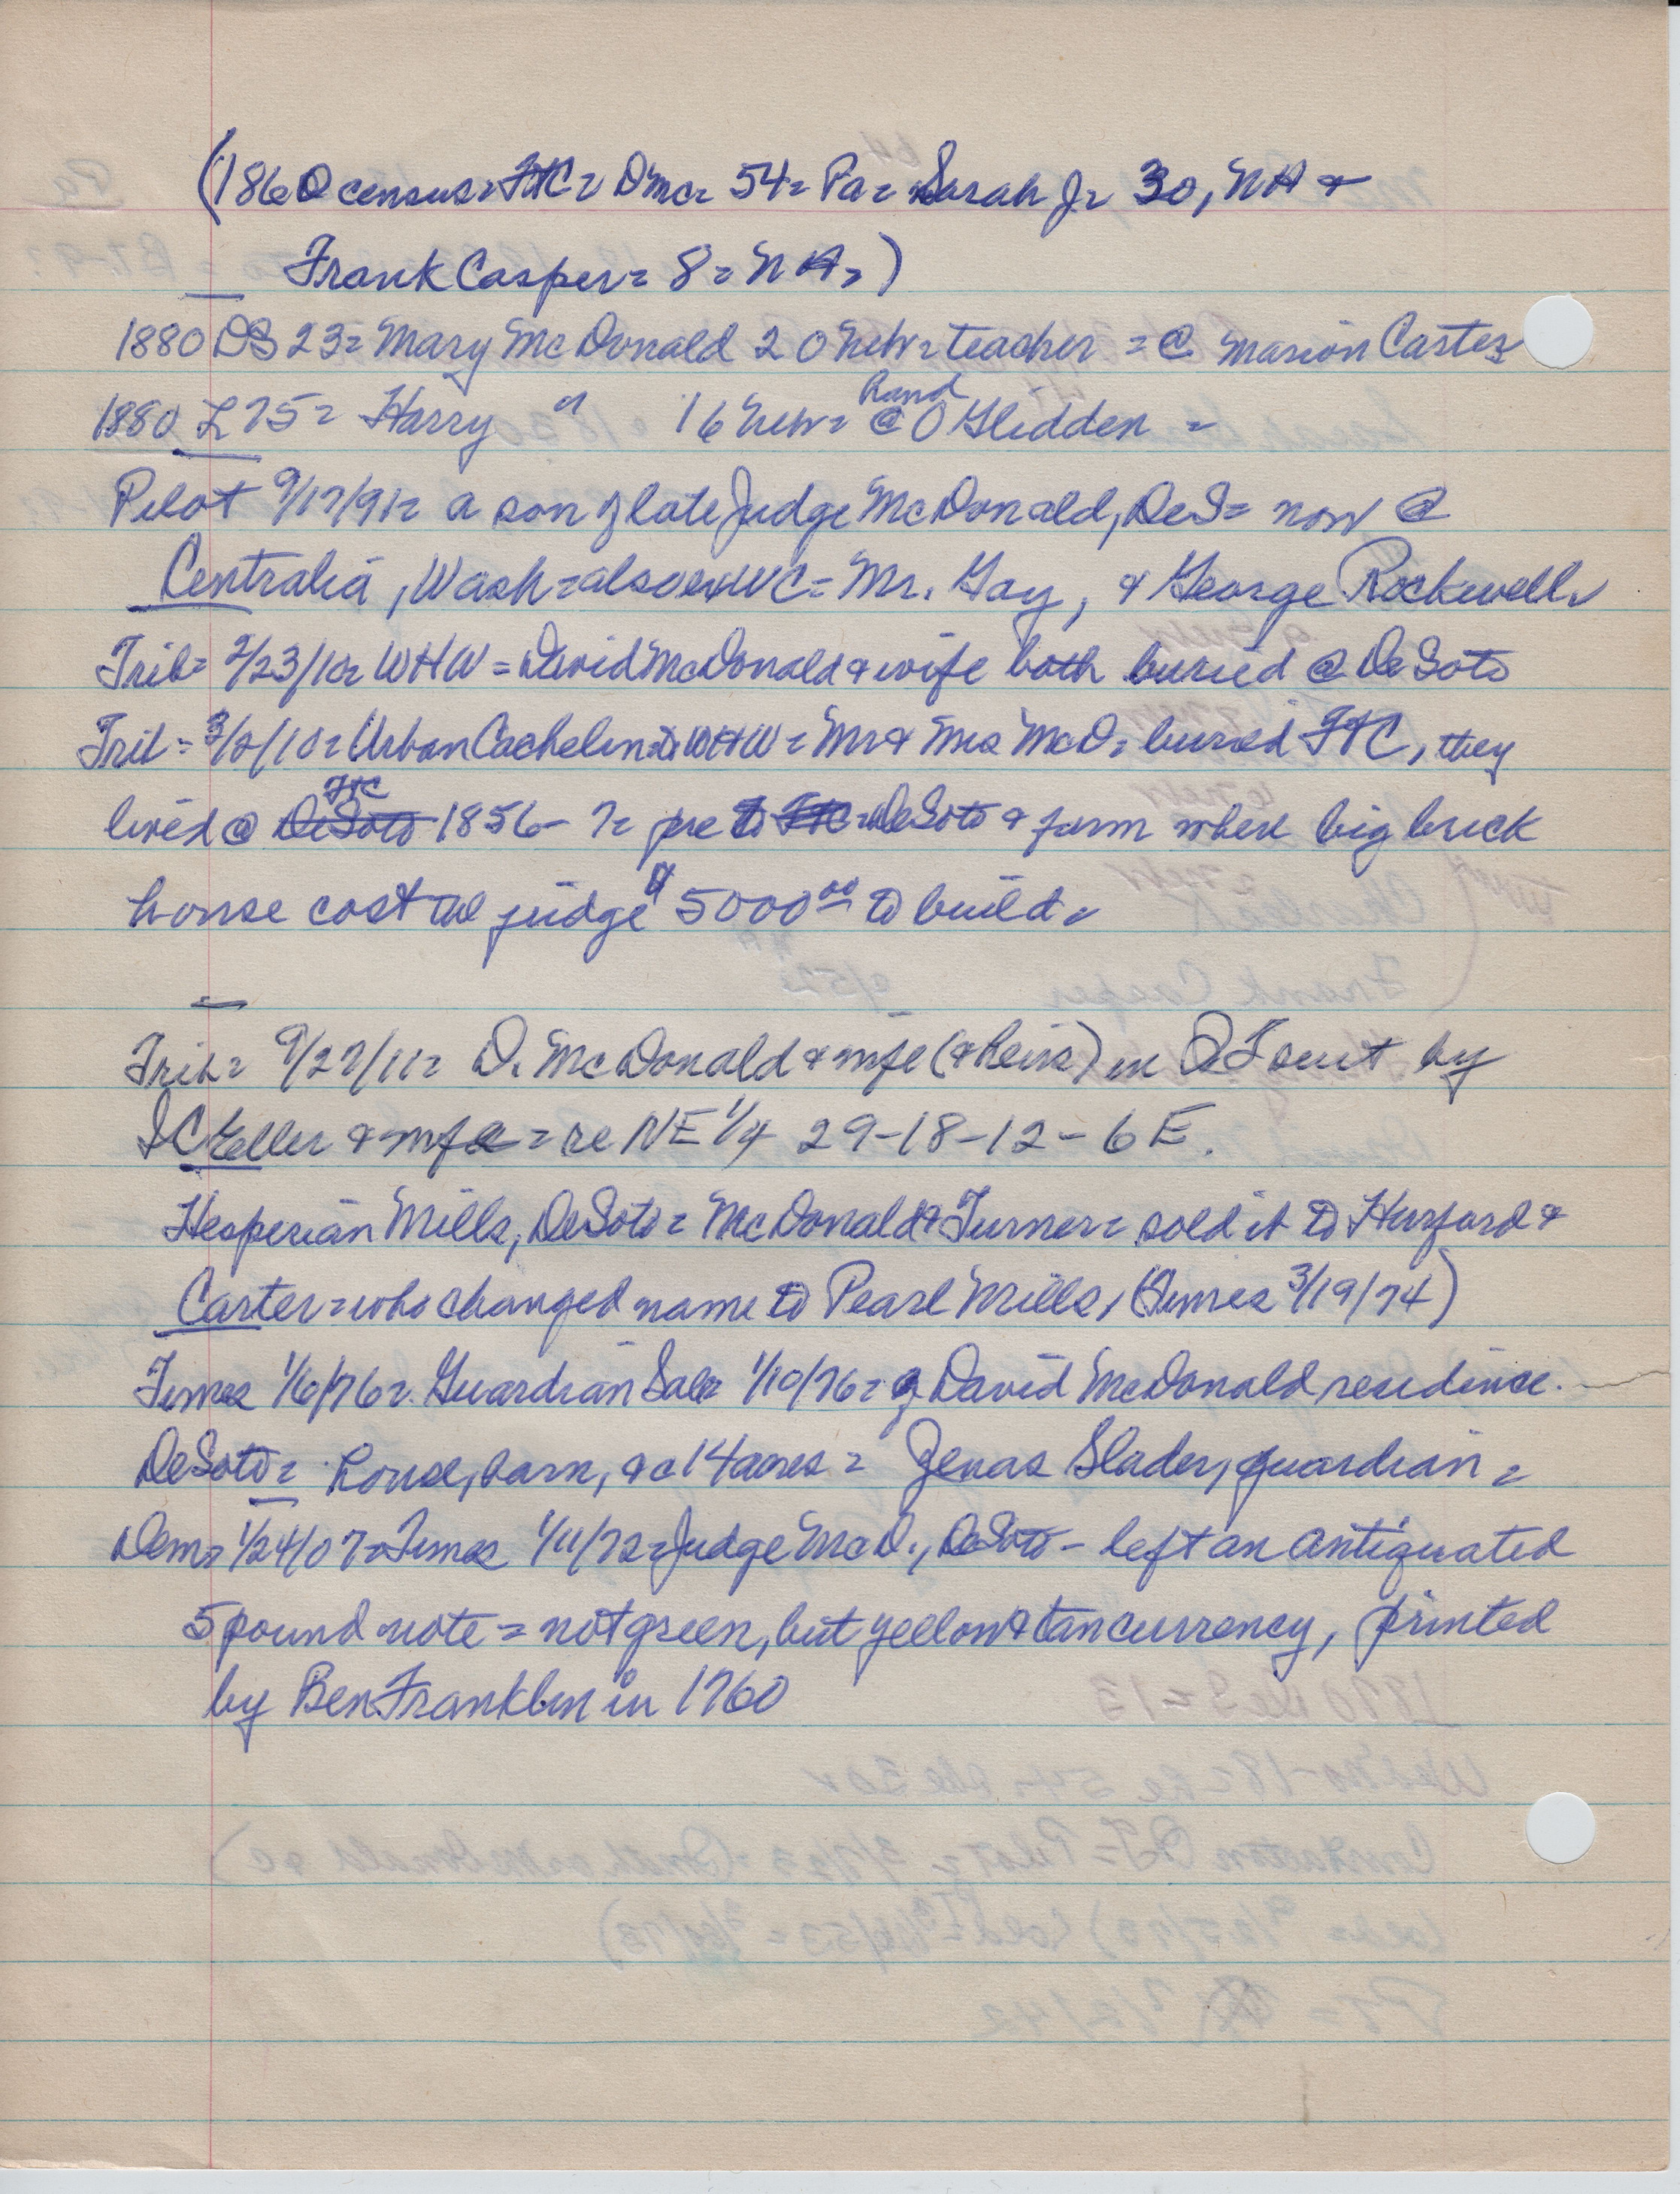 (1860 census = FtC = D Mc = 54 = Pa = Sarah J = 30, NH &
Frank Casper = 8 = NH = )
1880 DS 23 = Mary McDonald 20 Neb = teacher = @ Marion Carter
1880 L 75 = Harry " 16 Neb = @ O Glidden =
Hand
Pilot 9/17/91 = a son of late Judge McDonald, DeS = now @
Centralia, Wash = also exWC = Mr. Gay, & George Rockwell
Trib = 2/23/10 = WHW = David McDonald & wife both buried @ DeSoto
Trib = 3/2/10 = Urban Cachelin to WHW = Mr & Mrs McD = buried FtC, they
FtC
lived @ DeSoto 1856 - 7 = pre to FtC = DeSoto & farm where big brick
house cost the judge $5000.00 to build =
Trib = 9/27/11 = D. McDonald & wife (& heirs) in QT suit by
SC Eller & wife = re NE 1/4 29-18-12-6E.
Hesperian Mills, DeSoto = McDonald & Turner = sold it to Hurford &
Carter = who changed name to Pearl Mills, (Times 3/19/74)
Times 1/6/76 = Guardian Sale 1/10/76 = of David McDonald residence.
DeSoto = house, barn, &c 14 acres = Zenas Slader, guardian =
Dem = 1/24/07 = Times 1/11/72 = Judge McD., DeSoto - left an antiquated
5 pound note = not green, but yellow & tan currency, printed
by Ben Franklin in 1760